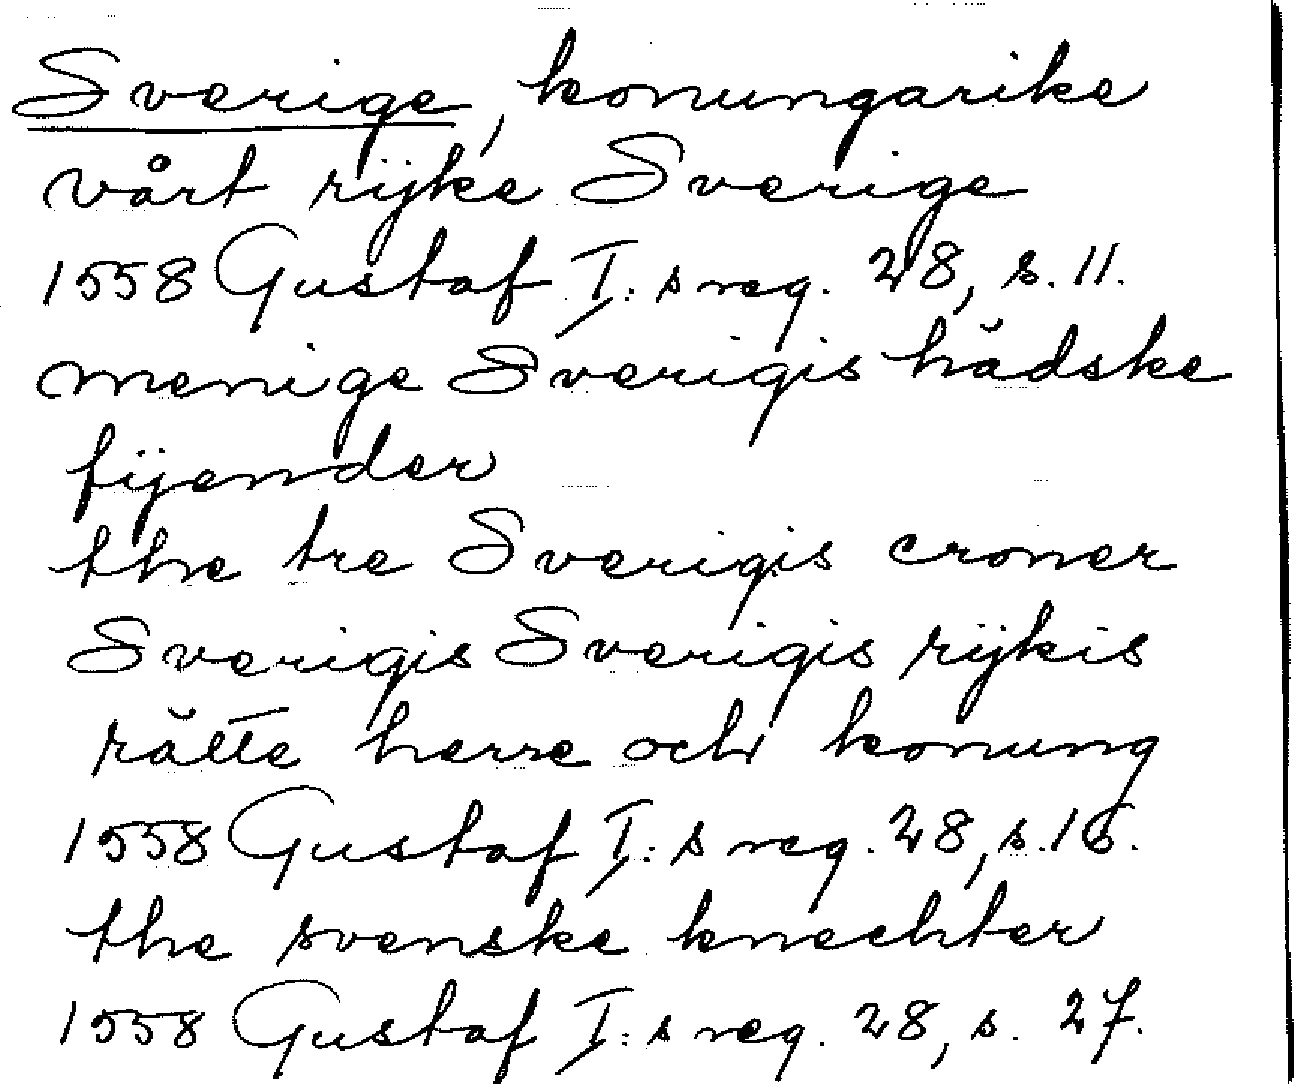 Sverige, konungarike
vårt rijke Sverige
1558 Gustaf I:s reg. 28, s. 11.
menige Sverigis hădske
fijender
the tre Sverigis croner
Sverigis Sverigis rijkis
rătte herre och konung
1558 Gustaf I:s reg. 28, s. 16.
the svenske knechter
1558 Gustaf I:s reg. 28, s. 27.